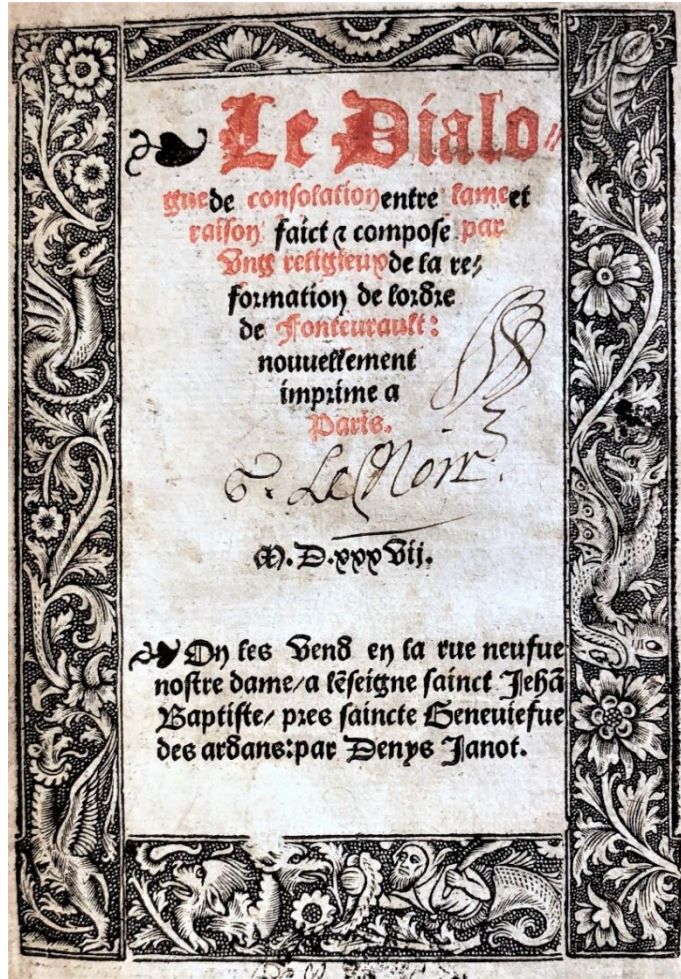 Le Dialo⸗
gue de consolation entre lame et
raison faict ⁊ compose par
Ung religieux de la re⸗
formation de lordre
de Fonteurault:
nouuellement
imprime a
Paris.
Le Noir.
M.D.xxxvij.
On les vend en la rue neufue
nostre dame/a lẽseigne sainct Jehã
Baptiste/ pres saincte Geneuiefue
des ardans:par Denys Janot.